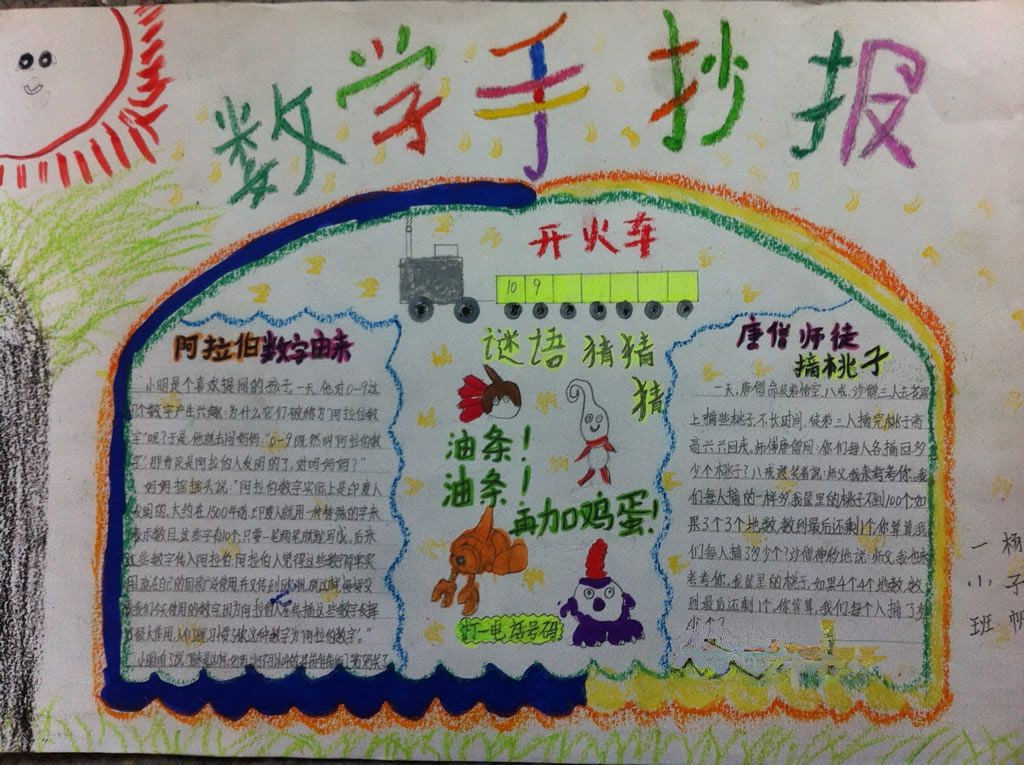 数学手抄报
开火车
10 9
阿拉伯数字由来
小明是个喜欢提问的孩子。一天,他对0-9这
几个数字产生兴趣:为什么它们被称为“阿拉伯数
字”呢?于是,他就去问妈妈:“0-9既然叫阿拉伯数
字,那肯定是阿拉伯人发明的了,对吗妈妈?”
妈妈摇摇头说:“阿拉伯数字实际上是印度人
发明的。大约在1500年前,印度人就用一种特殊的字来
表示数目,这些字有10个,只要一笔两笔就能写成。后来,
这些数字传入阿拉伯,阿拉伯人觉得这些数字简单实
用,就在自己的国家广泛使用,并又传到了欧洲。就这样,慢慢变
成我们今天使用的数字。因为阿拉伯人在传播这些数字发挥
了很大作用,人们就习惯了称这种数字为阿拉伯数字。”
谜语猜猜
猜
油条!
油条!
再加鸡蛋!
打一电话号码
唐僧师徒
摘桃子
一天,唐僧命徒弟悟空、八戒、沙僧三人去花果
上摘些桃子。不长时间,徒弟三人摘完桃子高
高兴兴回来。师傅唐僧问:你们每人各摘回多
少个桃子?八戒憨笑着说:师父,我来考考你。我
们每人摘的一样多,我筐里的桃子不到100个,如
果3个3个地数,数到最后还剩1个。你算算,我
们每人摘了多少个?沙僧神秘地说:师父,我也来
考考你。我筐里的桃子,如果4个4个地数,数
到最后还剩1个。你算算,我们每个人摘了多
少个?
一 杨
小 子
班 帆